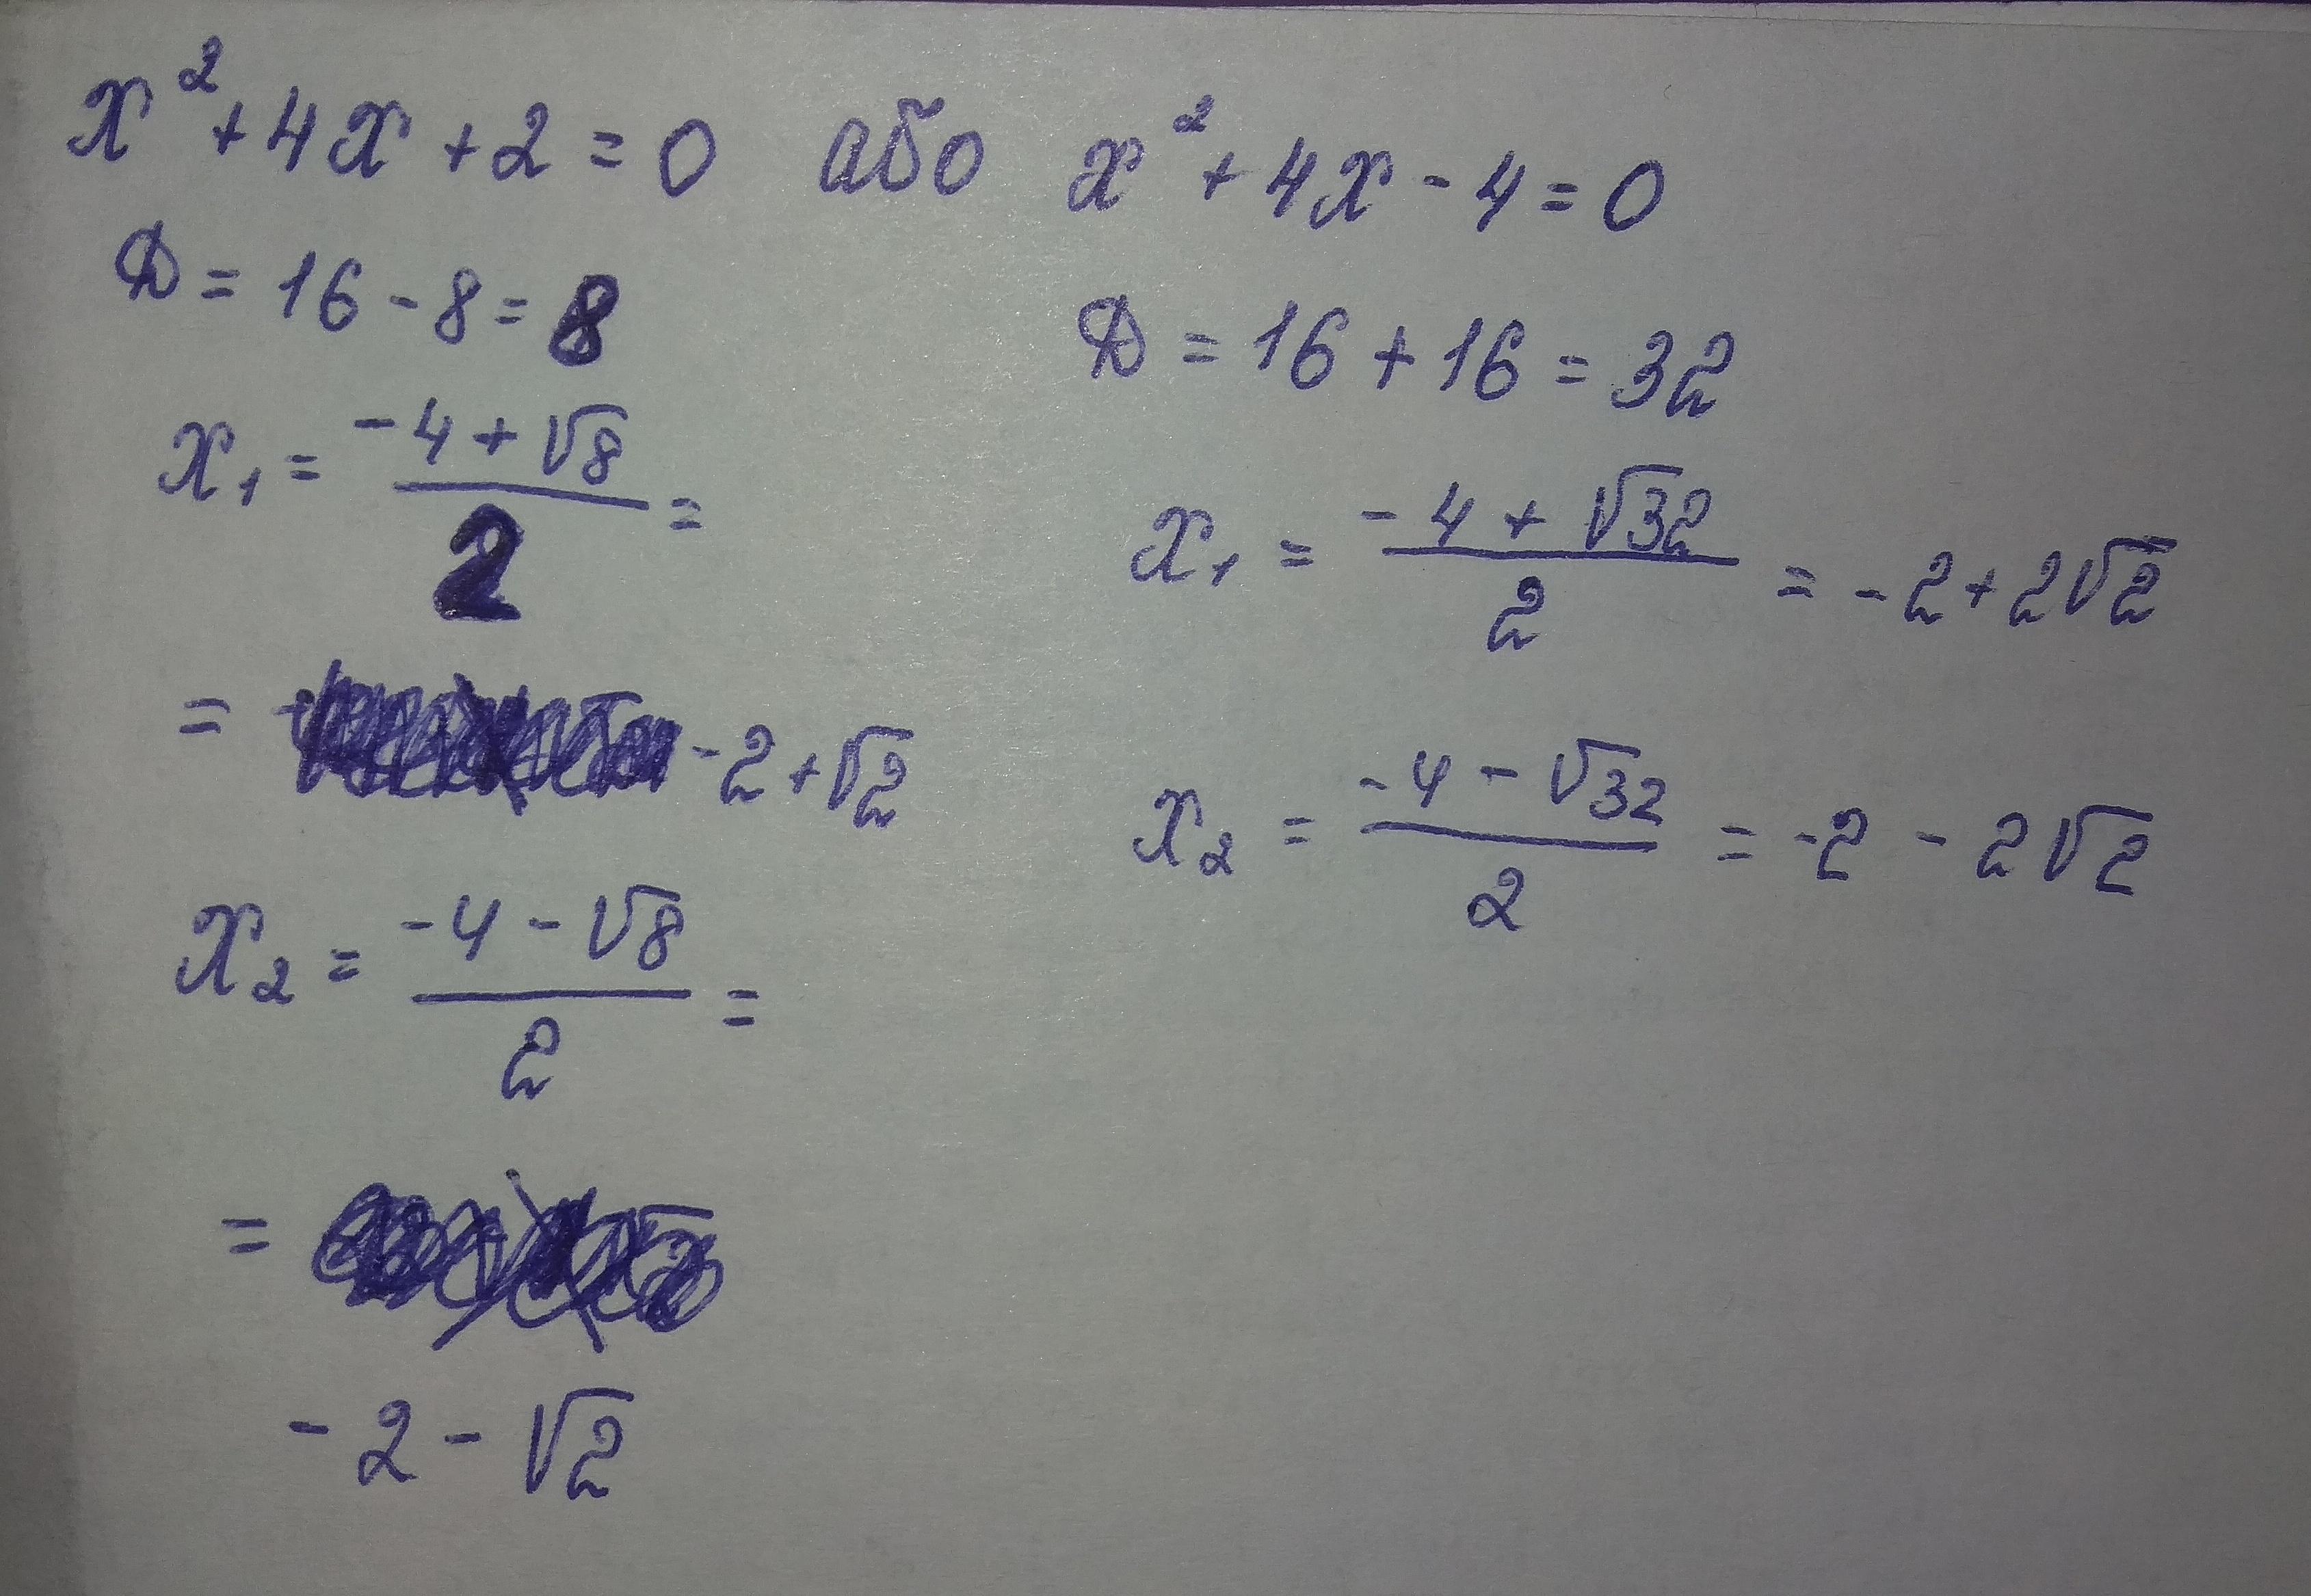 x² + 4x + 2 = 0 або x² + 4x - 4 = 0
D = 16 - 8 = 8
x₁ = (-4 + √8)/2 =
= -2 + √2
x₂ = (-4 - √8)/2 =
=
-2 - √2
D = 16 + 16 = 32
x₁ = (-4 + √32)/2 = -2 + 2√2
x₂ = (-4 - √32)/2 = -2 - 2√2